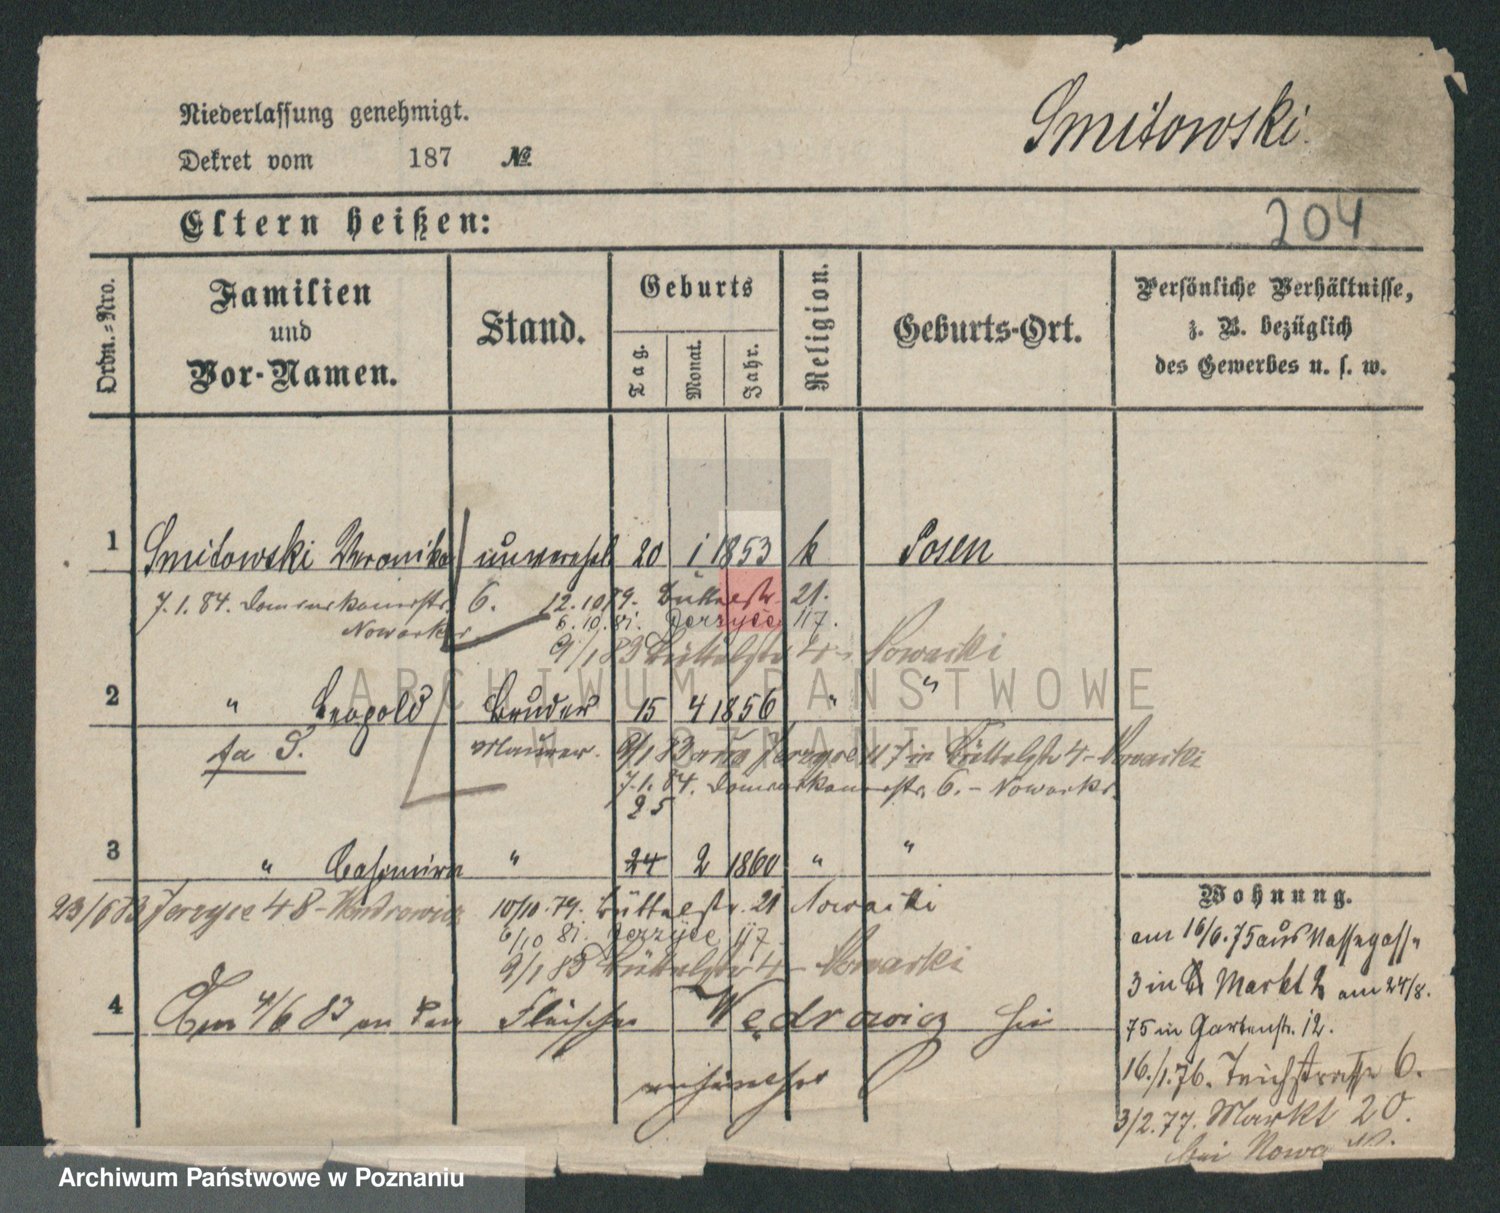 Niederlassung genehmigt.
Smitowski.
Dekret vom 187 №
Eltern heißen:
204
Ordn.-Nro.
Familien
und
Vor-Namen.
Stand.
Geburts
Tag.
Monat.
Jahr.
Religion.
Geburts-Ort.
Persönliche Verhältnisse,
z. B. bezüglich
des Gewerbes u. s. w.
1 Smitowski Veronika unverehel 20 1 1853 k Posen
7.1.84. 6. 12.10.79. Büttelstr. 21.
Nowacki 6.10.81. Jerzyce 117.
9/1 83 Büttelstr 4 - Nowacki
ARCHIWUM PAŃSTWOWE
2 " Leopold Bruder 15 4 1856 " "
W POZNANIU
fa S. Maurer. 9/1 83 aus Jerzyce 117 in Büttelstr 4 - Nowacki
7.1.84. 6. - Nowacki
25
3 " Casimira " 24 2 1860 " "
23/6 83 Jerzyce 48 - 10/10.79. Büttelstr. 21 Nowacki
6/10 81. Jerzyce 117
9/1 83 Büttelstr 4 - Nowacki
4 4/6 83 an den Fleischer Wędrowicz hier
Wohnung.
am 16/6.75 aus
3 in Markt 2 am 24/8.
75 in Gartenstr. 12.
16./1.76. Teichstrasse 6.
3/2.77. Markt 20.
bei
Archiwum Państwowe w Poznaniu